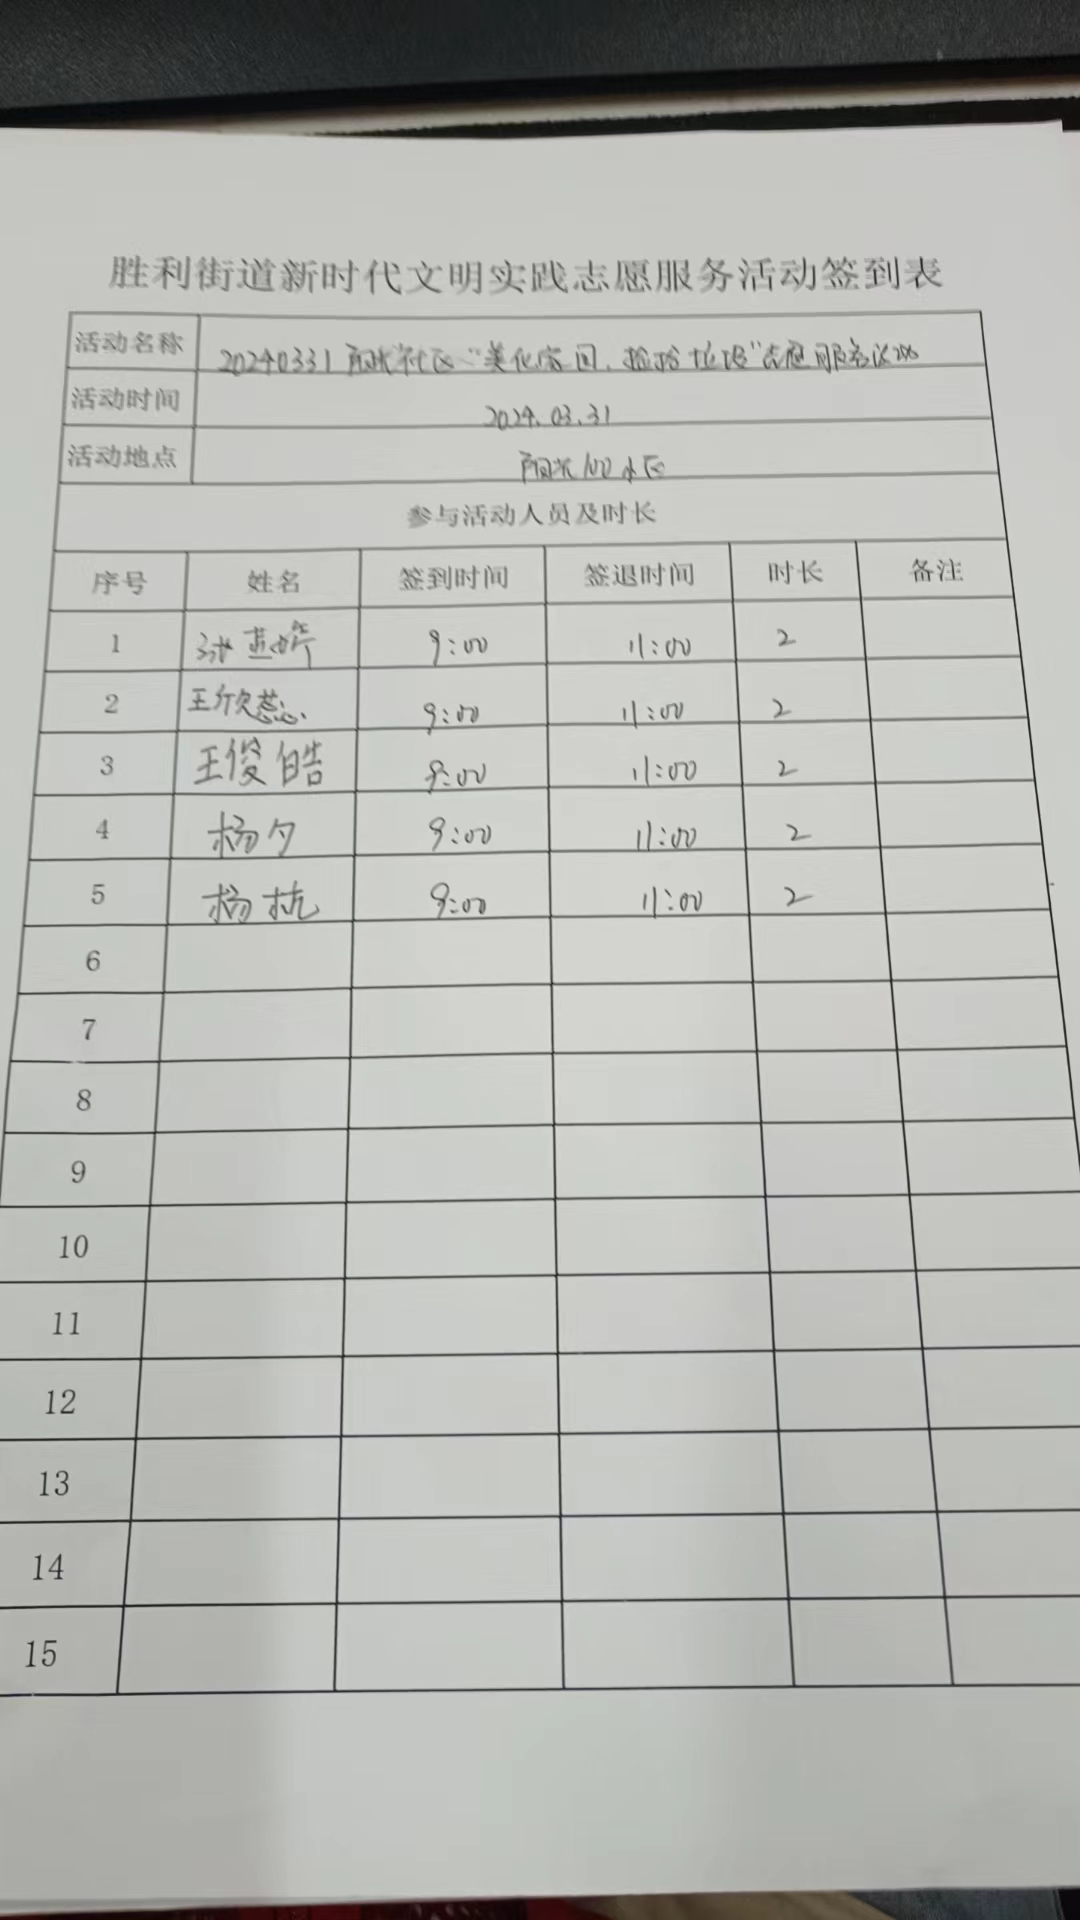 胜利街道新时代文明实践志愿服务活动签到表
活动名称 20240331阳光社区“美化家园,捡拾垃圾”志愿服务活动
活动时间 2024.03.31
活动地点 阳光100小区
参与活动人员及时长
序号 姓名 签到时间 签退时间 时长 备注
1 9:00 11:00 2
2 王欣蕊 9:00 11:00 2
3 王俊皓 9:00 11:00 2
4 杨夕 9:00 11:00 2
5 杨杭 9:00 11:00 2
6
7
8
9
10
11
12
13
14
15